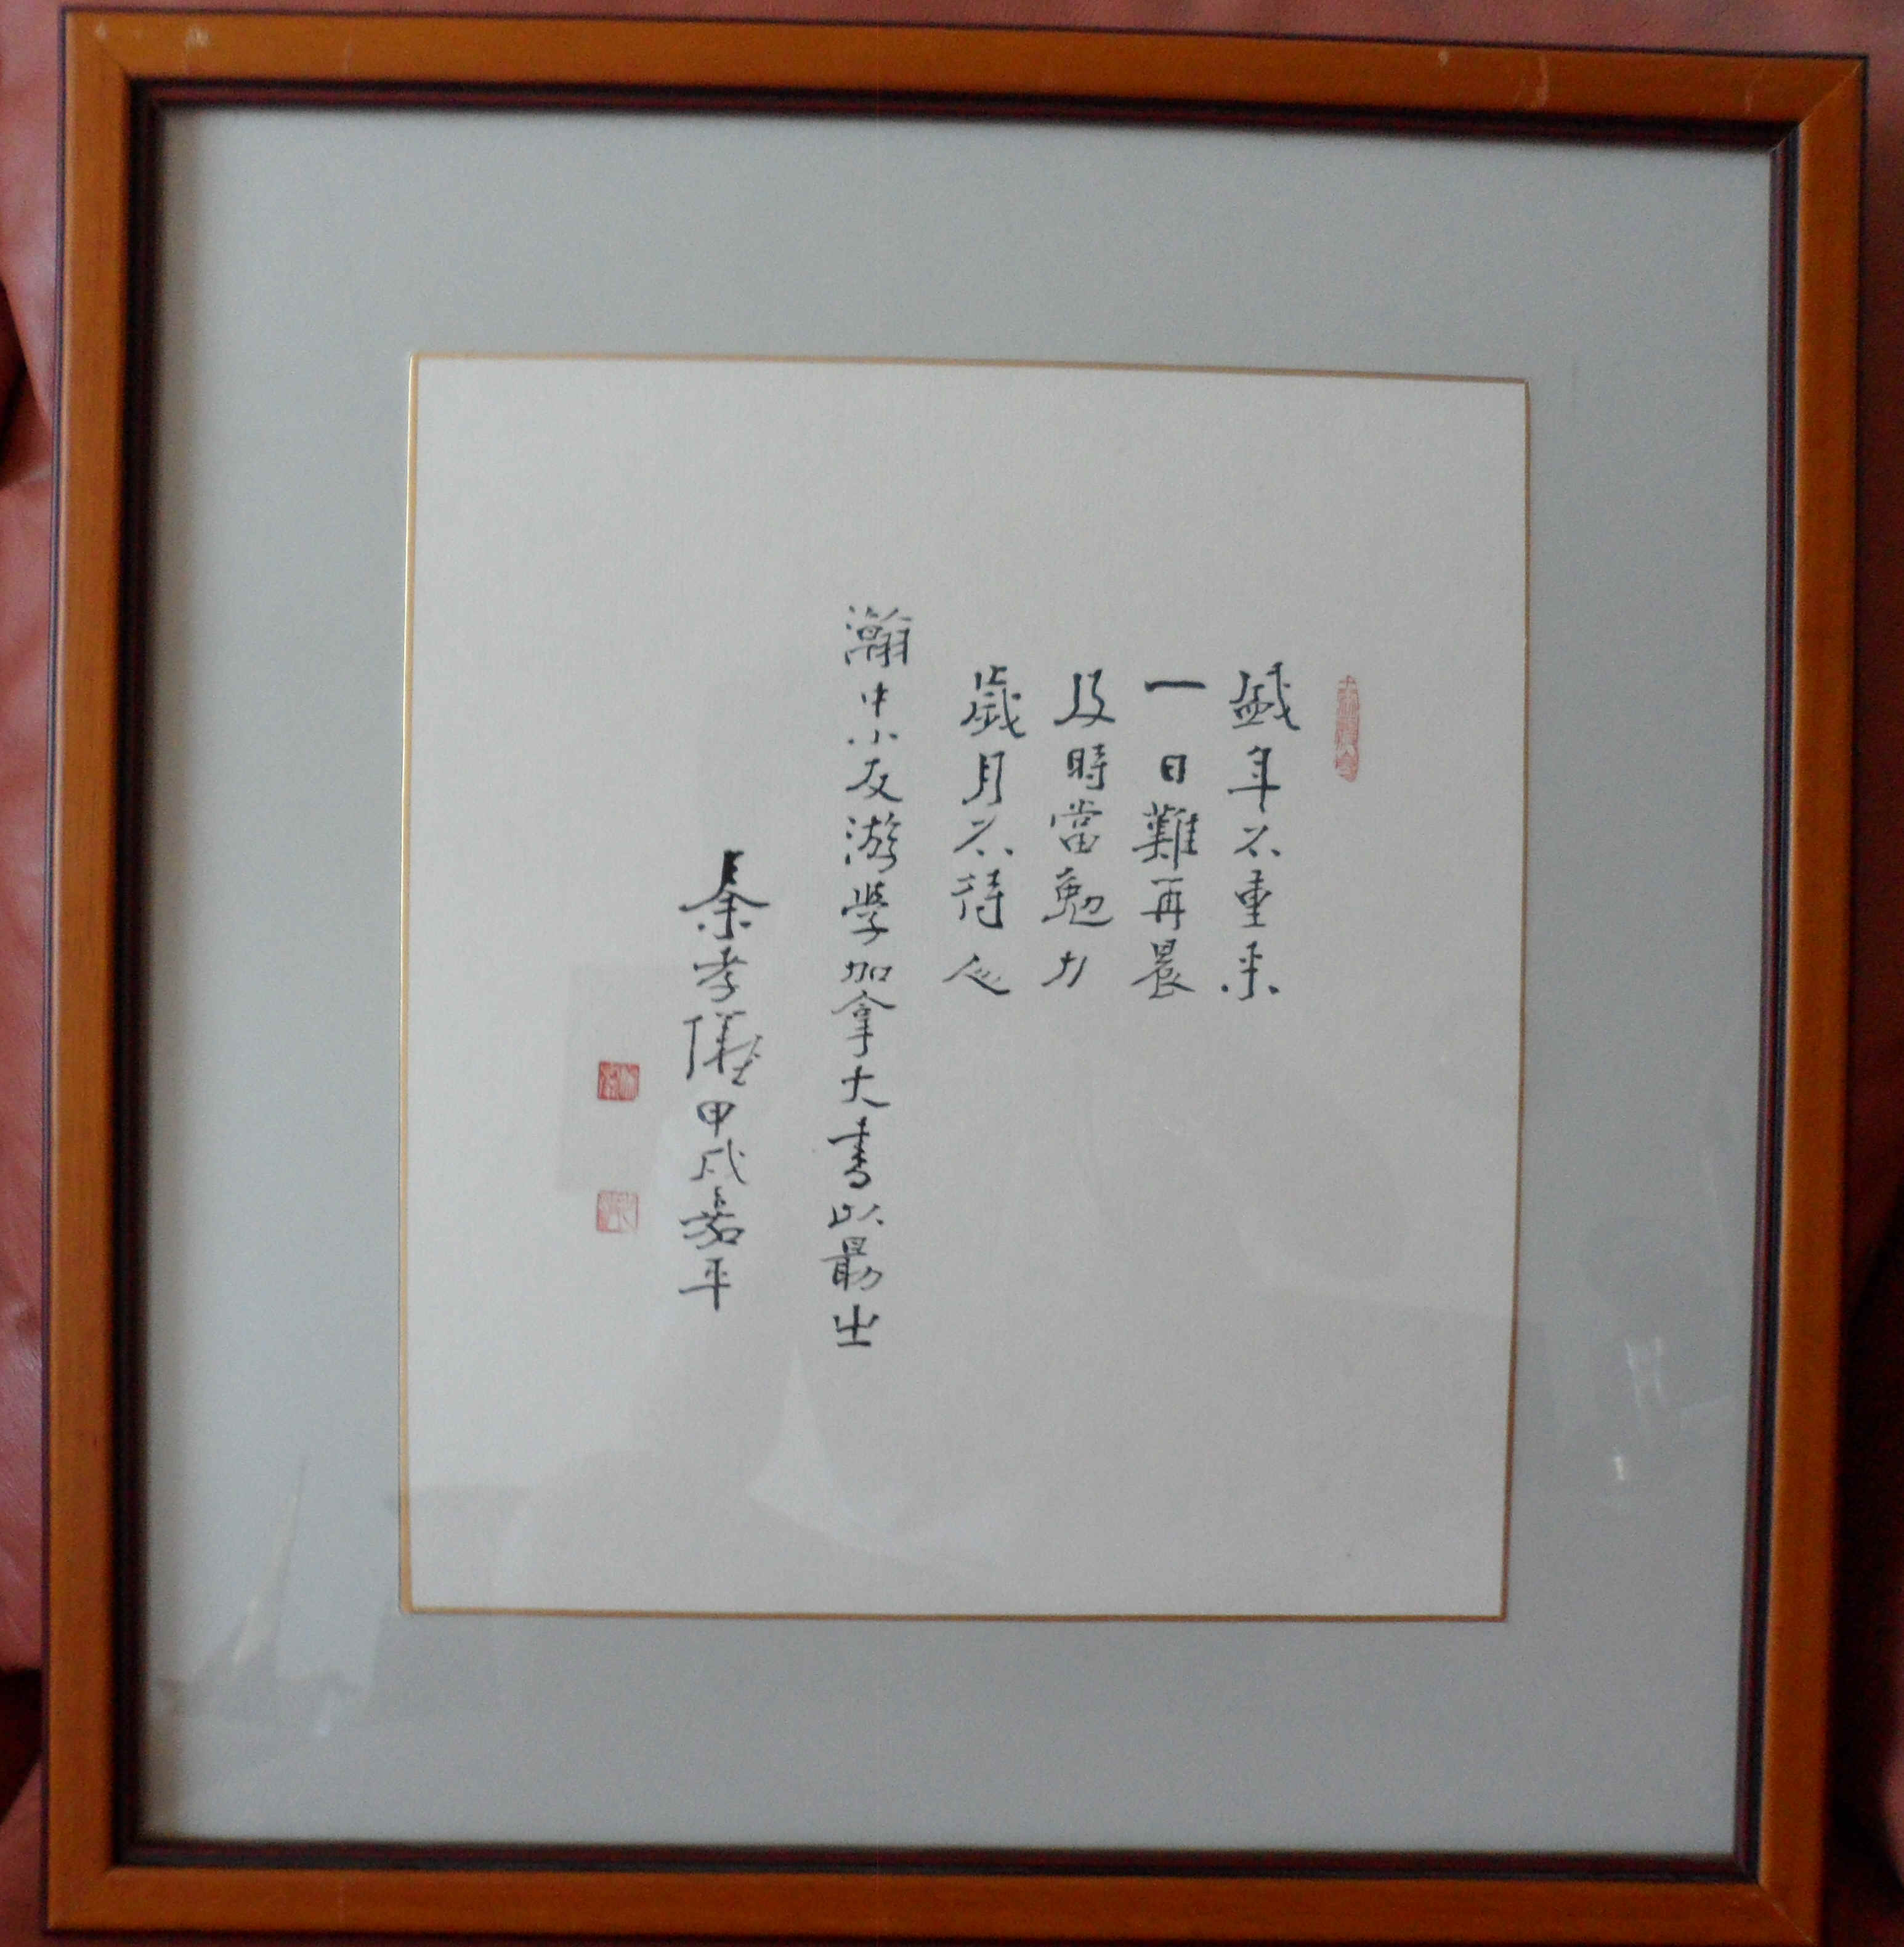 盛年不重来
一日難再晨
及時當勉力
歲月不待人
瀚中小友游學加拿大書以勗之
秦孝儀甲戌嘉平